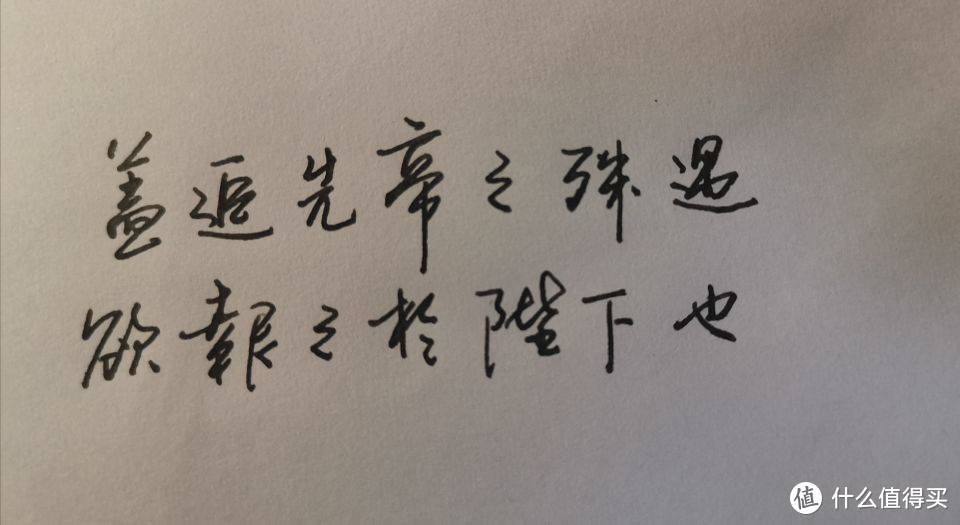 盖追先帝之殊遇
欲報之於陛下也
值 什么值得买